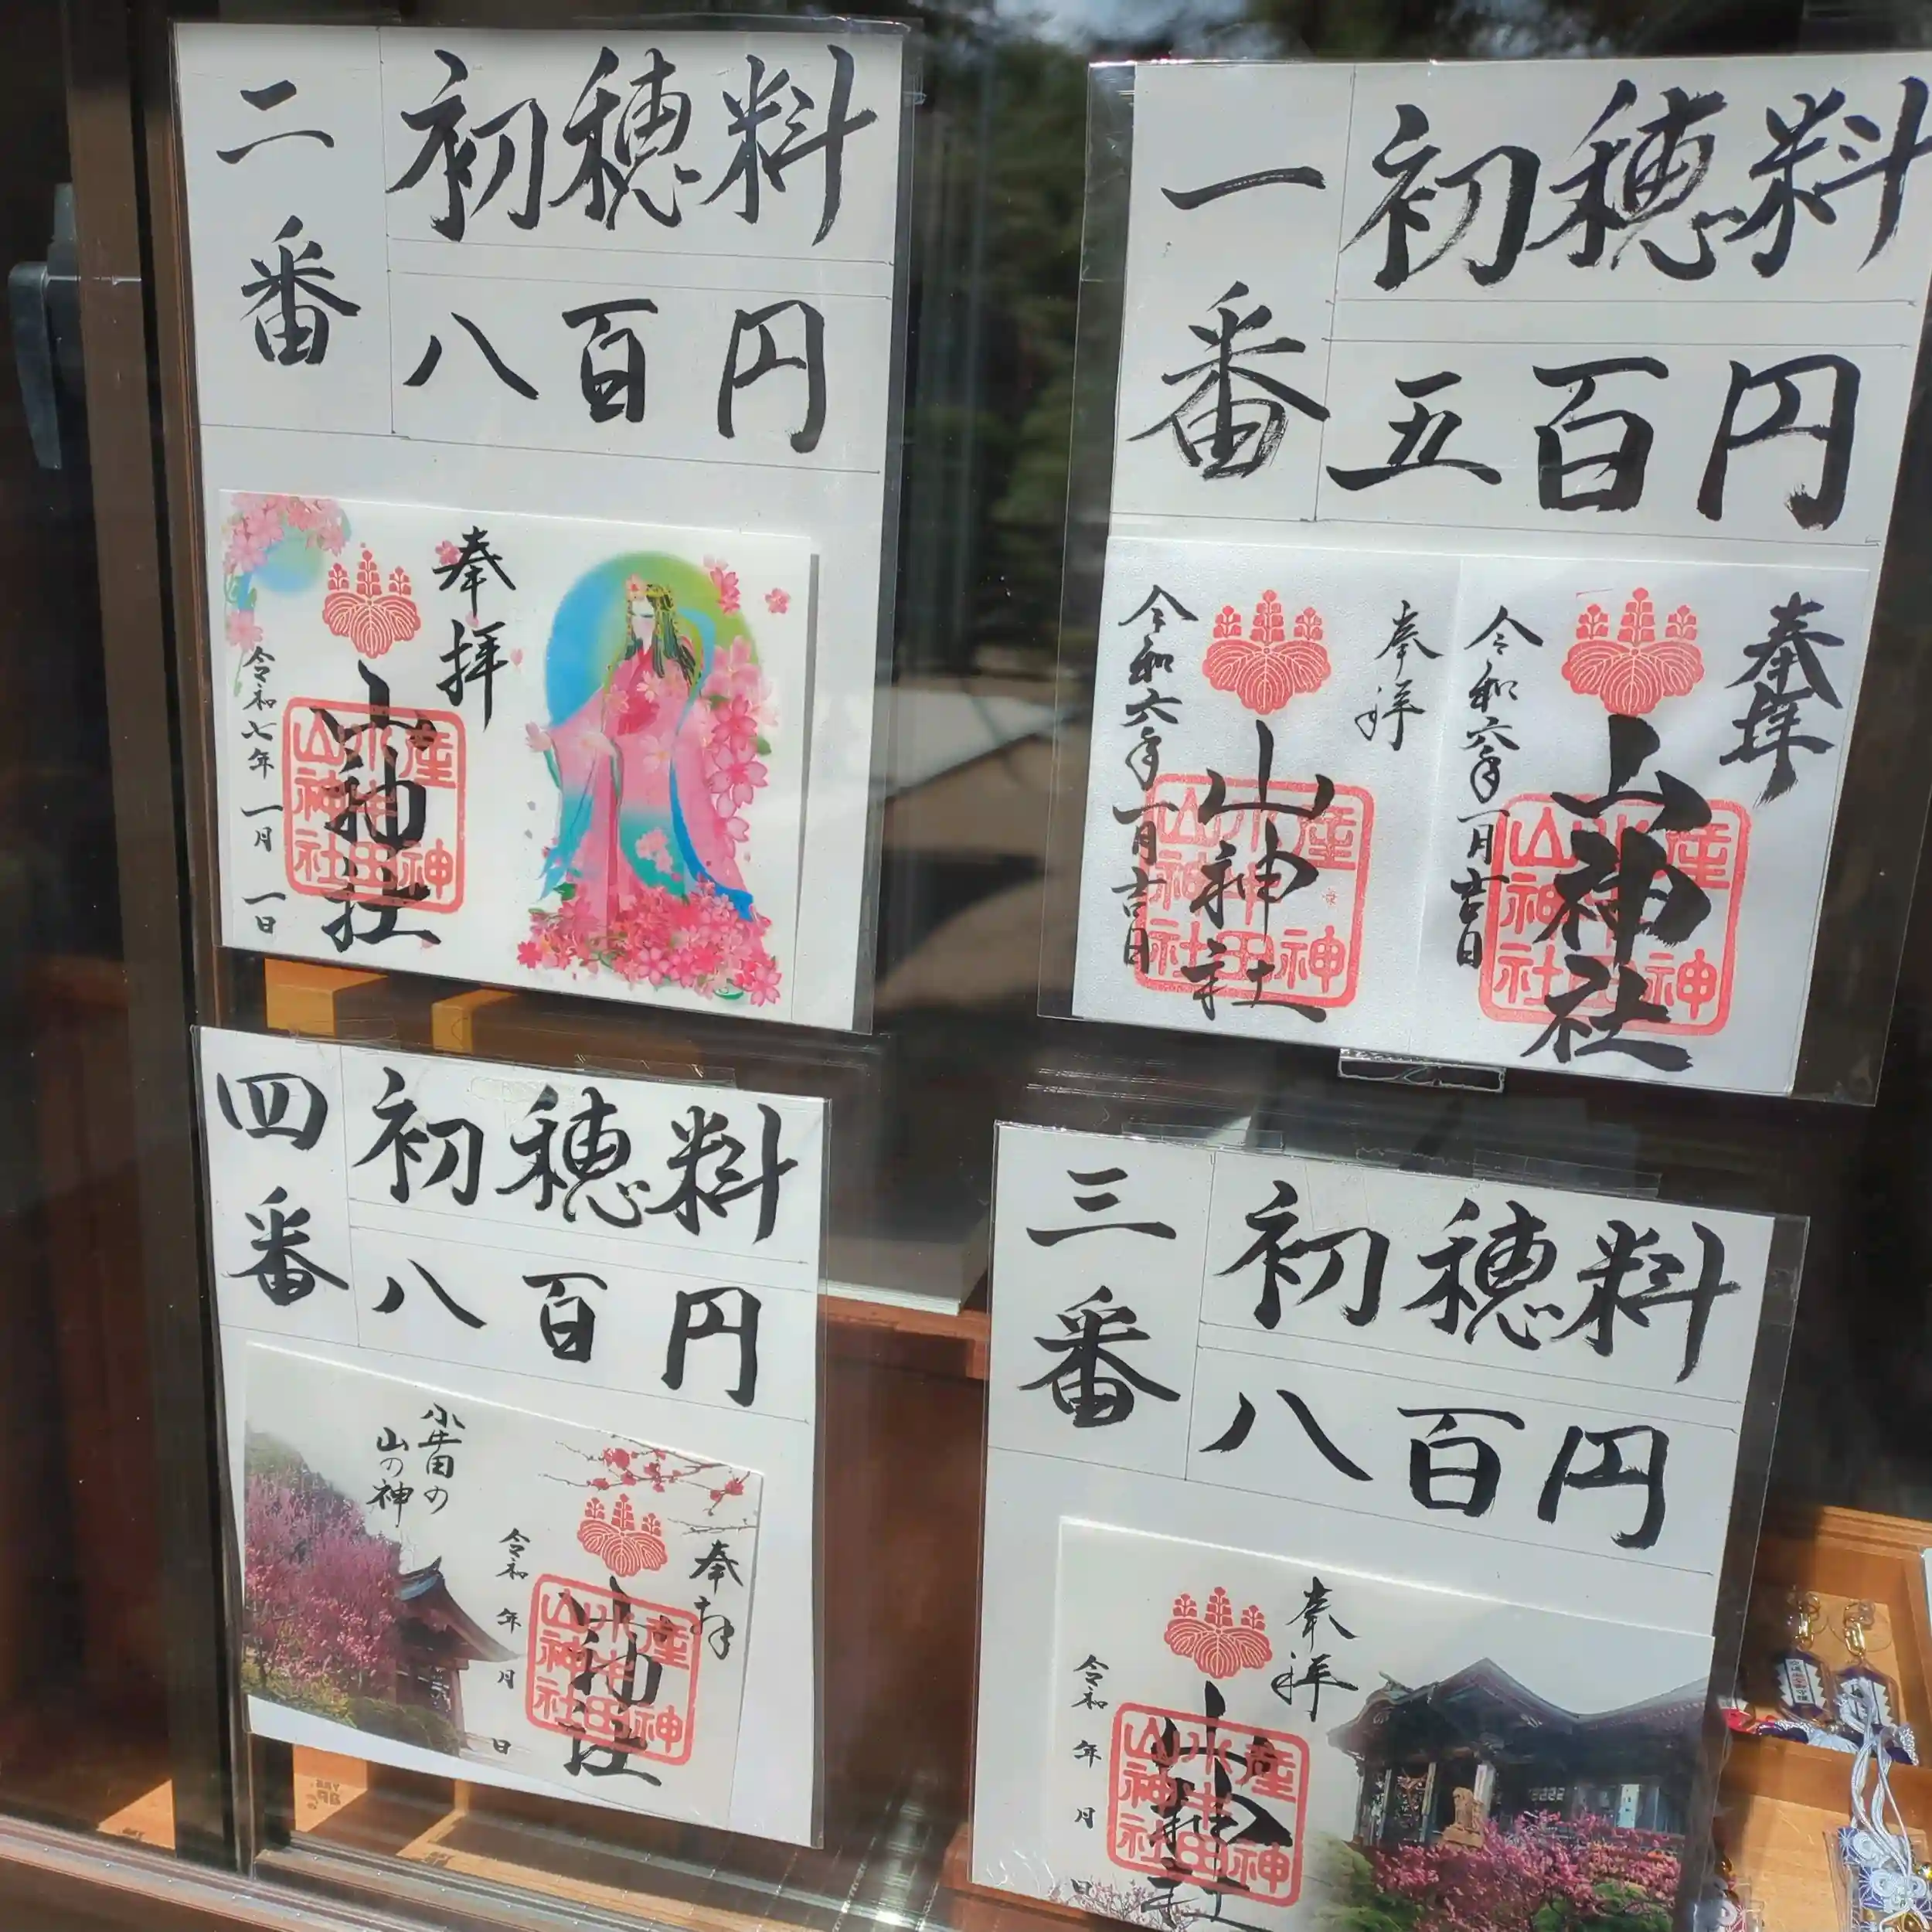 一番
初穂料
五百円
奉拝
山神社
令和六年一月吉日
産神
小牛田
山神社
奉拝
山神社
令和六年一月吉日
産神
小牛田
山神社
二番
初穂料
八百円
奉拝
山神社
令和七年一月一日
産神
小牛田
山神社
三番
初穂料
八百円
奉拝
山神社
令和 年 月 日
産神
小牛田
山神社
四番
初穂料
八百円
奉拝
山神社
令和 年 月 日
産神
小牛田
山神社
小牛田の
山の神